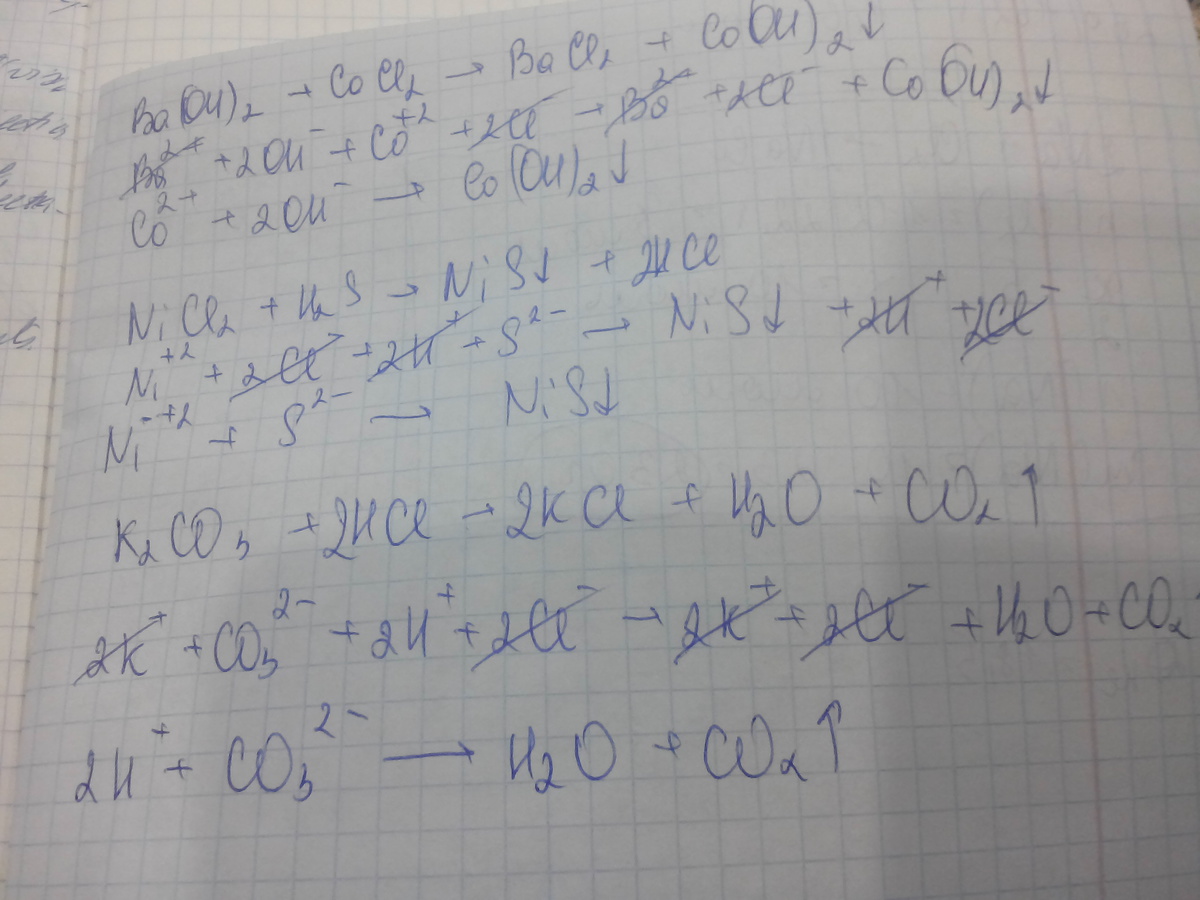 Ba(OH)₂ + CoCl₂ → BaCl₂ + Co(OH)₂↓
Ba²⁺ + 2OH⁻ + Co⁺² + 2Cl⁻ → Ba²⁺ + 2Cl⁻ + Co(OH)₂↓
Co²⁺ + 2OH⁻ → Co(OH)₂↓
NiCl₂ + H₂S → NiS↓ + 2HCl
Ni⁺² + 2Cl⁻ + 2H⁺ + S²⁻ → NiS↓ + 2H⁺ + 2Cl⁻
Ni⁺² + S²⁻ → NiS↓
K₂CO₃ + 2HCl → 2KCl + H₂O + CO₂↑
2K⁺ + CO₃²⁻ + 2H⁺ + 2Cl⁻ → 2K⁺ + 2Cl⁻ + H₂O + CO₂
2H⁺ + CO₃²⁻ → H₂O + CO₂↑